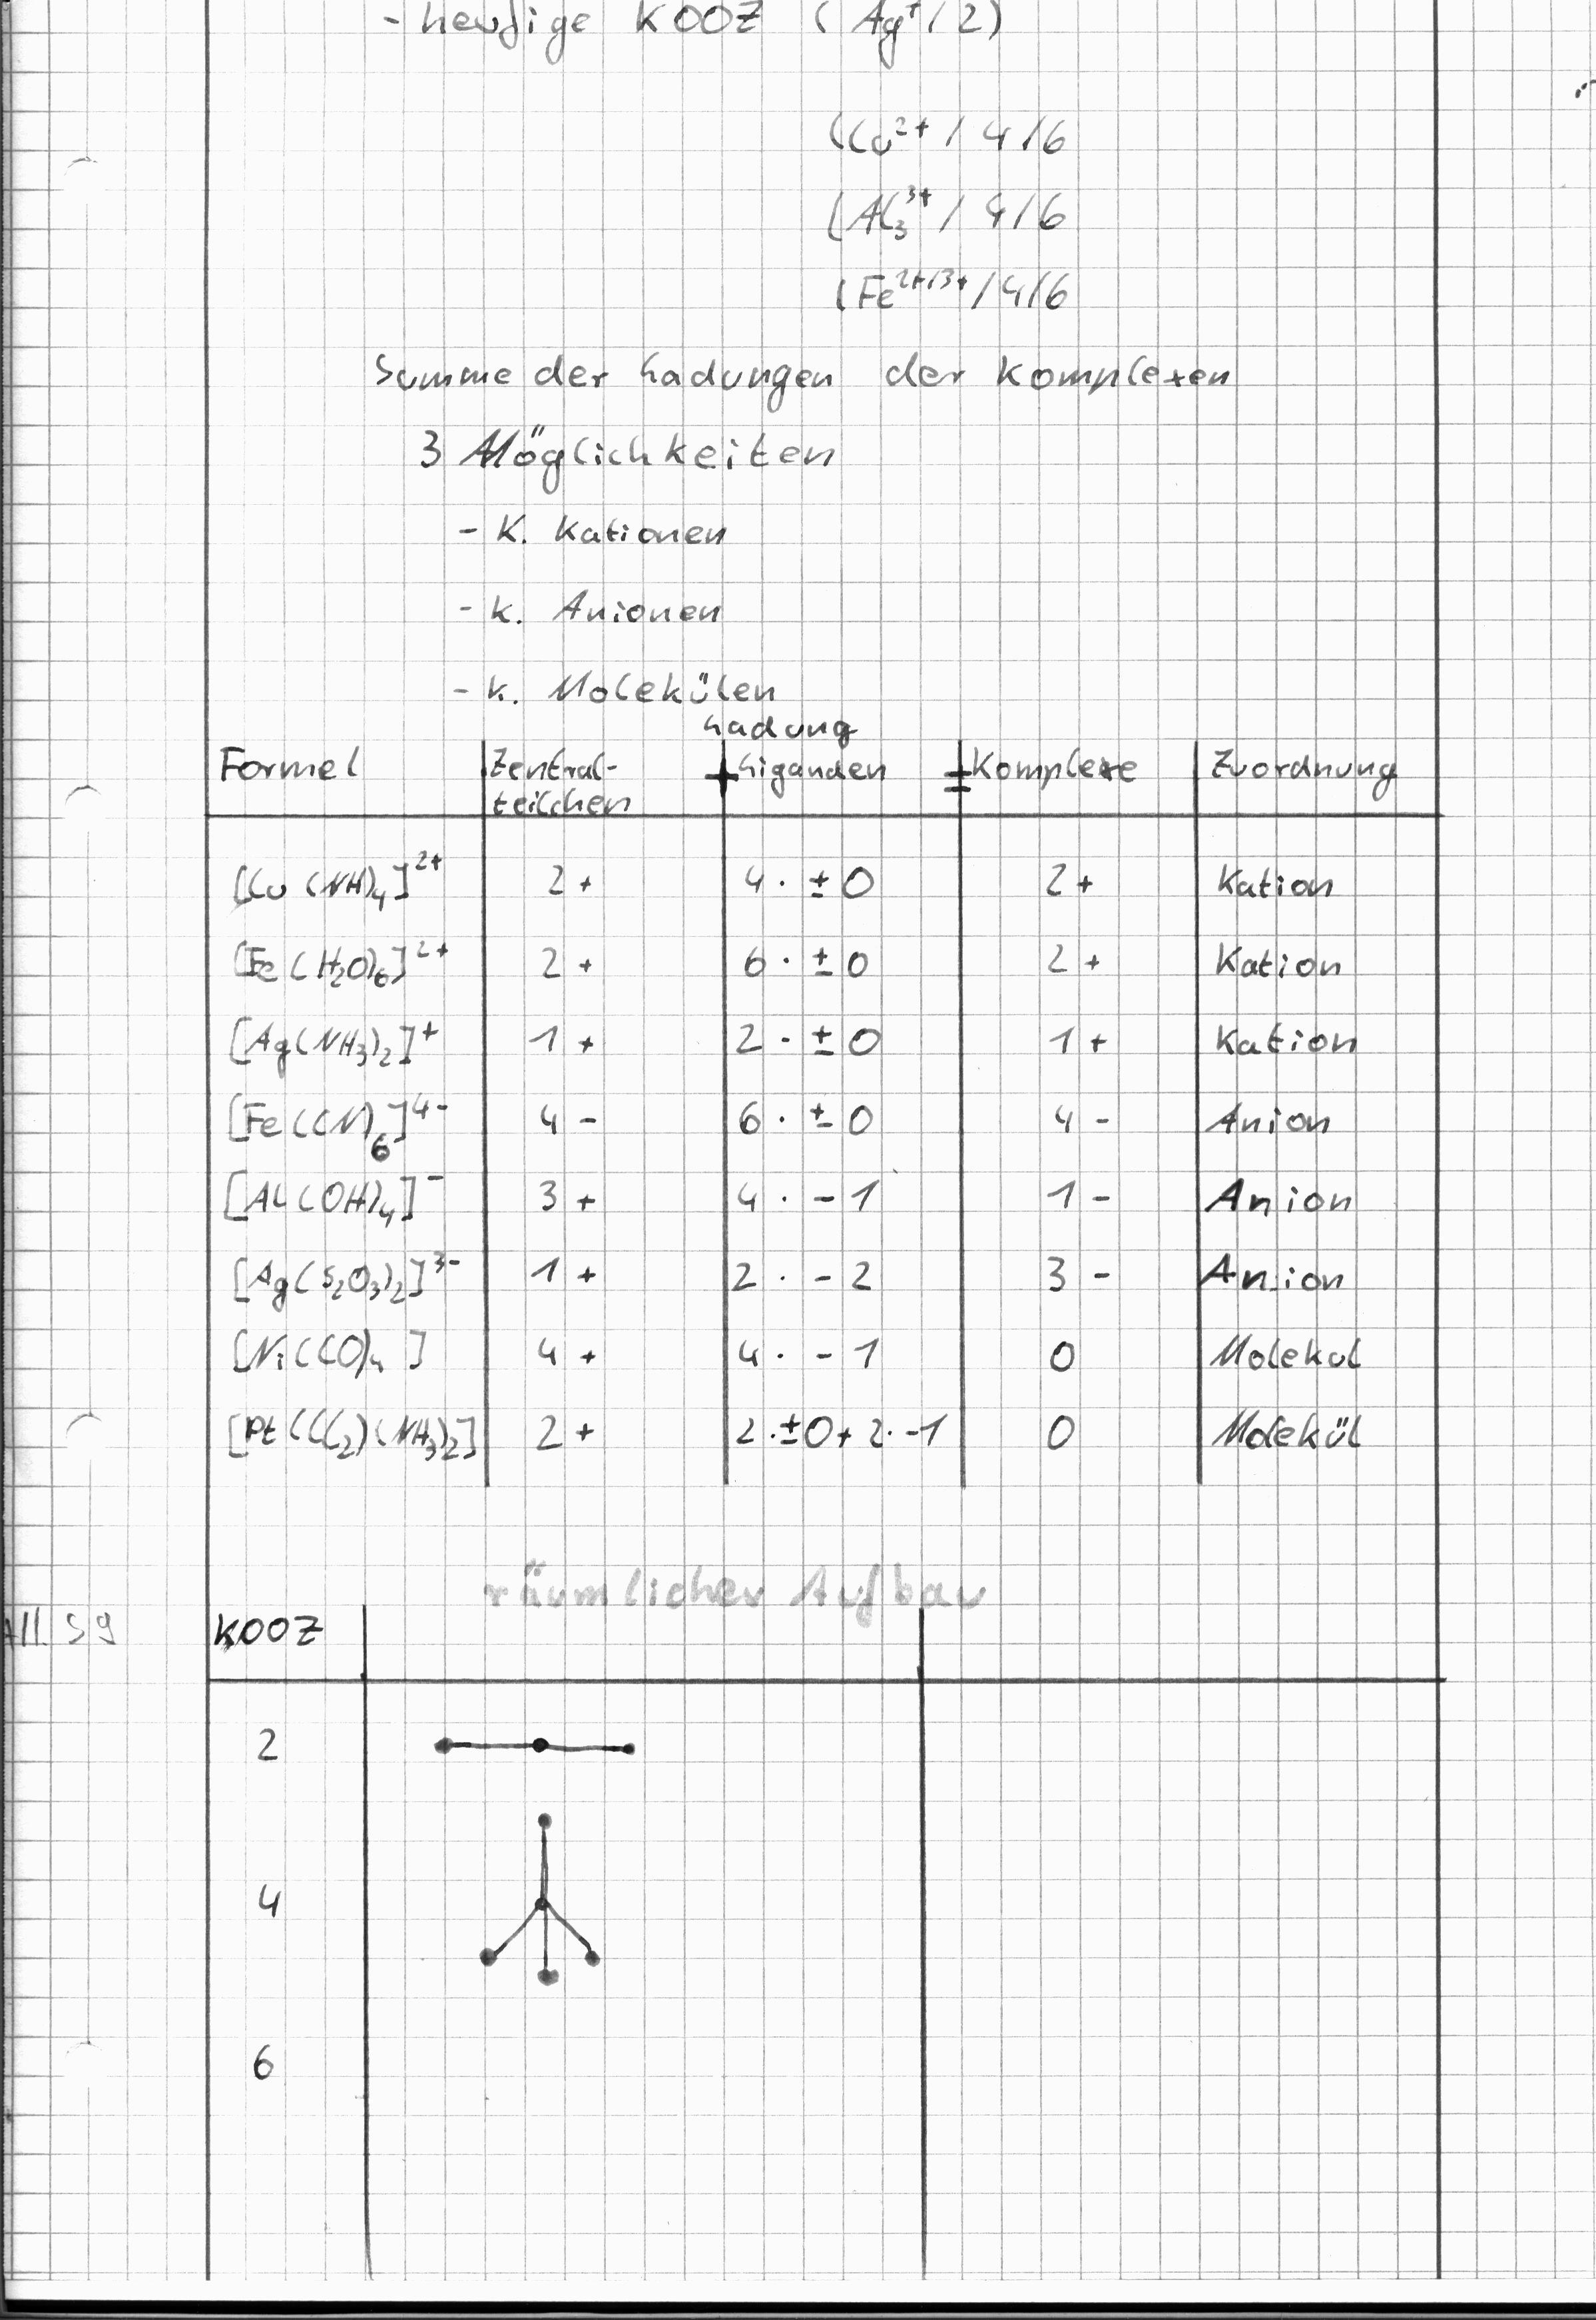 - heufige KOOZ ( Ag⁺ / 2)
(Cu²⁺ / 4 / 6
(Al₃³⁺ / 4 / 6
(Fe²⁺/³⁺ / 4 / 6
Summe der Ladungen der Komplexen
3 Möglichkeiten
- K. Kationen
- K. Anionen
- K. Molekülen
Ladung
Formel Zentral- + Liganden = Komplexe Zuordnung
teilchen
[Cu (NH)₄]²⁺ 2 + 4 · ± 0 2 + Kation
[Fe (H₂O)₆]²⁺ 2 + 6 · ± 0 2 + Kation
[Ag(NH₃)₂]⁺ 1 + 2 · ± 0 1 + Kation
[Fe (CN)₆]⁴⁻ 4 - 6 · ± 0 4 - Anion
[Al (OH)₄]⁻ 3 + 4 · - 1 1 - Anion
[Ag(S₂O₃)₂]³⁻ 1 + 2 · - 2 3 - Anion
[Ni(CO)₄ ] 4 + 4 · - 1 0 Molekul
[Pt (Cl₂) (NH₃)₂] 2 + 2 · ± 0 + 2 · -1 0 Molekül
räumlicher Aufbau
All S9 KOOZ
2
4
6